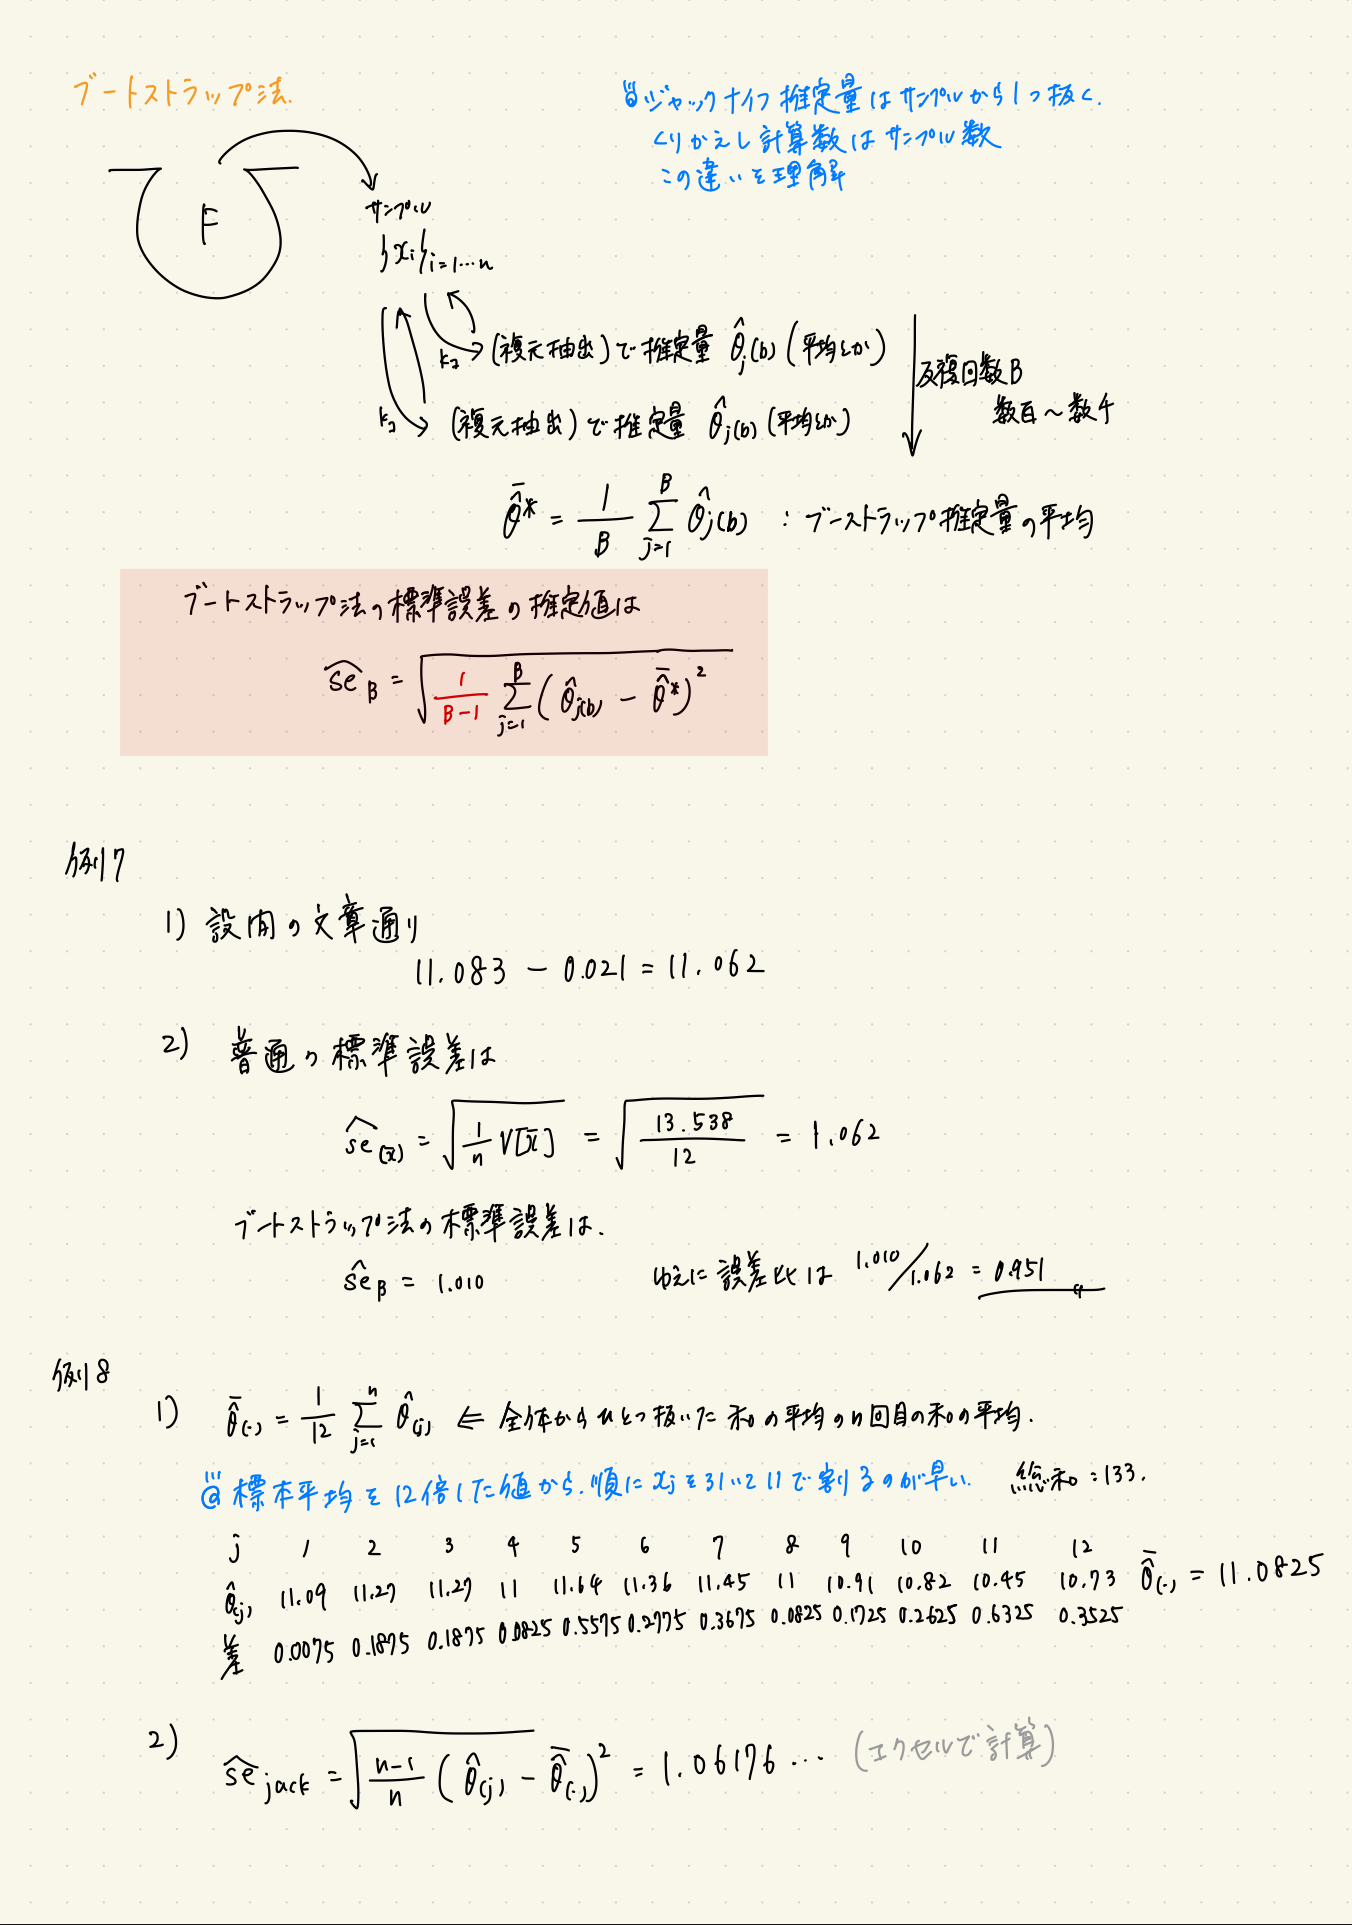 ブートストラップ法.
ジャックナイフ推定量はサンプルから1つ抜く.
くりかえし計算数はサンプル数
この違いを理解
F
サンプル
{xi}i=1…n
(復元抽出)で推定量 θ̂j(b) (平均とか)
(復元抽出)で推定量 θ̂j(b) (平均とか)
反復回数B
数百〜数千
θ̂̄* = 1/B Σ_{j=1}^{B} θ̂j(b) : ブーストラップ推定量の平均
ブートストラップ法の標準誤差の推定値は
ŝe_B = √(1/(B-1) Σ_{j=1}^{B} (θ̂j(b) - θ̂̄*)²
例17
1) 設問の文章通り
11.083 - 0.021 = 11.062
2) 普通の標準誤差は
ŝe(x̄) = √(1/n V[x̄]) = √(13.538/12) = 1.062
ブートストラップ法の標準誤差は.
ŝe_B = 1.010 ゆえに誤差比は 1.010/1.062 = 0.951
例18
1) θ̂̄(・) = 1/12 Σ_{j=1}^{n} θ̂(j) ⇐ 全体からひとつ抜いた和の平均のn回目の和の平均.
@標本平均を12倍した値から.順にxjを引いて11で割るのが早い. 総和:133.
j 1 2 3 4 5 6 7 8 9 10 11 12
θ̂(j) 11.09 11.27 11.27 11 11.64 11.36 11.45 11 10.91 10.82 10.45 10.73 θ̂̄(・) = 11.0825
差 0.0075 0.1875 0.1875 0.0825 0.5575 0.2775 0.3675 0.0825 0.1725 0.2625 0.6325 0.3525
2) ŝe jack = √((n-1)/n (θ̂(j) - θ̂̄(・))² = 1.06176… (エクセルで計算)